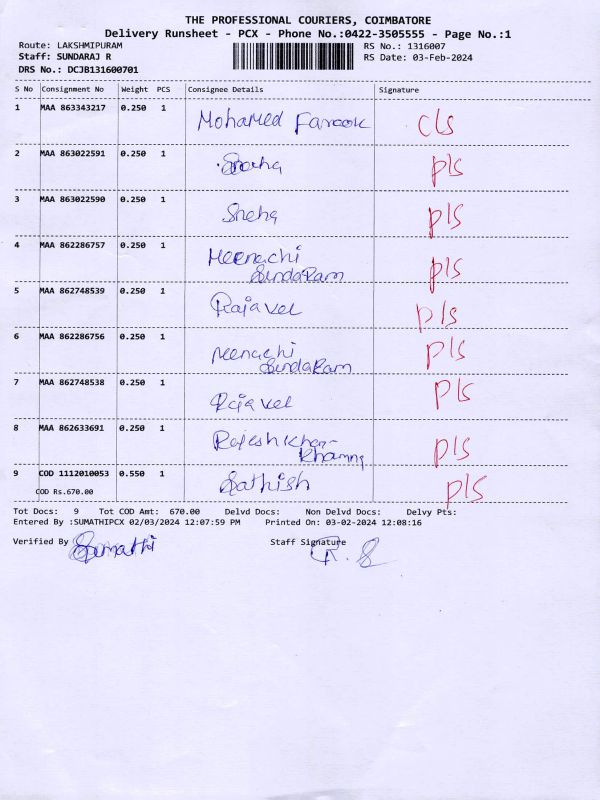 THE PROFESSIONAL COURIERS, COIMBATORE
Delivery Runsheet - PCX - Phone No.:0422-3505555 - Page No.:1
Route: LAKSHMIPURAM RS No.: 1316007
Staff: SUNDARAJ R RS Date: 03-Feb-2024
DRS No.: DCJB131600701
S No Consignment No Weight PCS Consignee Details Signature
1 MAA 863343217 0.250 1 Mohamed Farook cls
2 MAA 863022591 0.250 1 pls
3 MAA 863022590 0.250 1 Sneha pls
4 MAA 862286757 0.250 1 Meenachi
SundaRam pls
5 MAA 862748539 0.250 1 Rajavel pls
6 MAA 862286756 0.250 1 Meenachi pls
SundaRam
7 MAA 862748538 0.250 1 Rajavel pls
8 MAA 862633691 0.250 1 Rajesh khan-
khanna pls
9 COD 1112010053 0.550 1 Sathish pls
COD Rs.670.00
Tot Docs: 9 Tot COD Amt: 670.00 Delvd Docs: Non Delvd Docs: Delvy Pts:
Entered By :SUMATHIPCX 02/03/2024 12:07:59 PM Printed On: 03-02-2024 12:08:16
Verified By Sumathi Staff Signature R. S